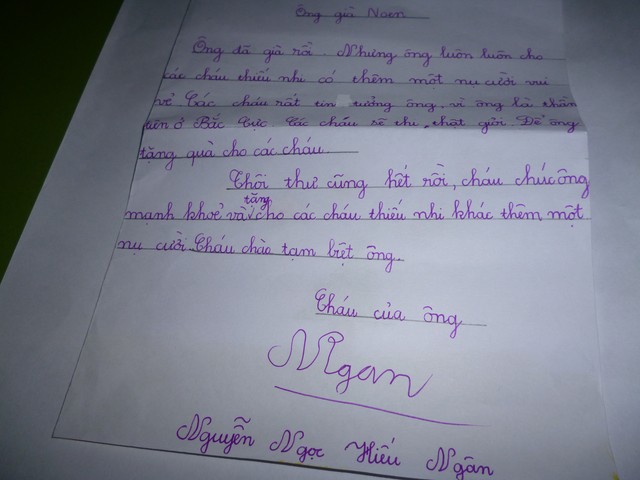 Ông già Noen
Ông đã già rồi. Nhưng ông luôn luôn cho
các cháu thiếu nhi có thêm một nụ cười vui
vẻ Các cháu rất tin tưởng ông, vì ông là thần
tiên ở Bắc Cực Các cháu sẽ thi thật giỏi. Để ông
tặng quà cho các cháu.
Thôi thư cũng hết rồi, cháu chúc ông
tặng
mạnh khoẻ và cho các cháu thiếu nhi khác thêm một
nụ cười Cháu chào tạm biệt ông.
Cháu của ông
Ngan
Nguyễn Ngọc Hiếu Ngân